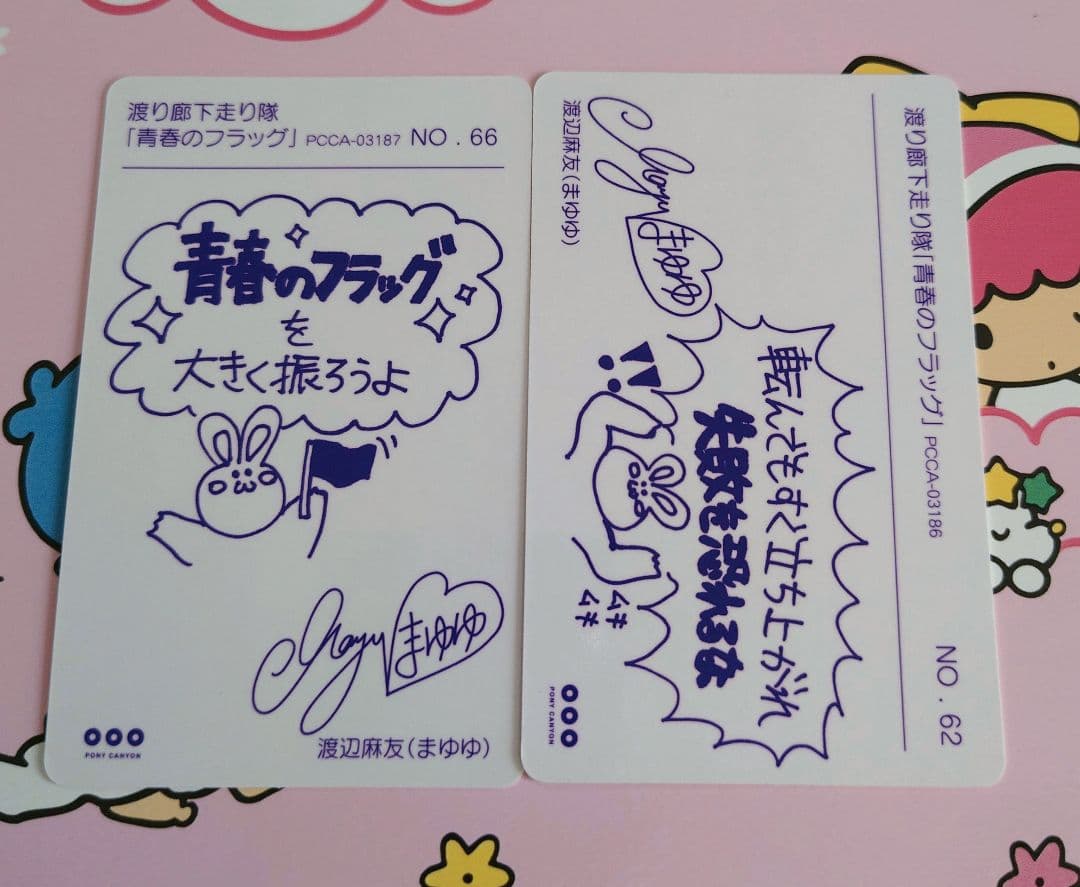 渡り廊下走り隊
「青春のフラッグ」 PCCA-03187 NO . 66
青春のフラッグ
を
大きく振ろうよ
Mayu まゆゆ
渡辺麻友(まゆゆ)
PONY CANYON
渡り廊下走り隊「青春のフラッグ」 PCCA-03186 NO . 62
転んでもすぐ立ち上がれ
失敗を恐れるな
!!
ムキ
ムキ
Mayu まゆゆ
渡辺麻友(まゆゆ)
PONY CANYON